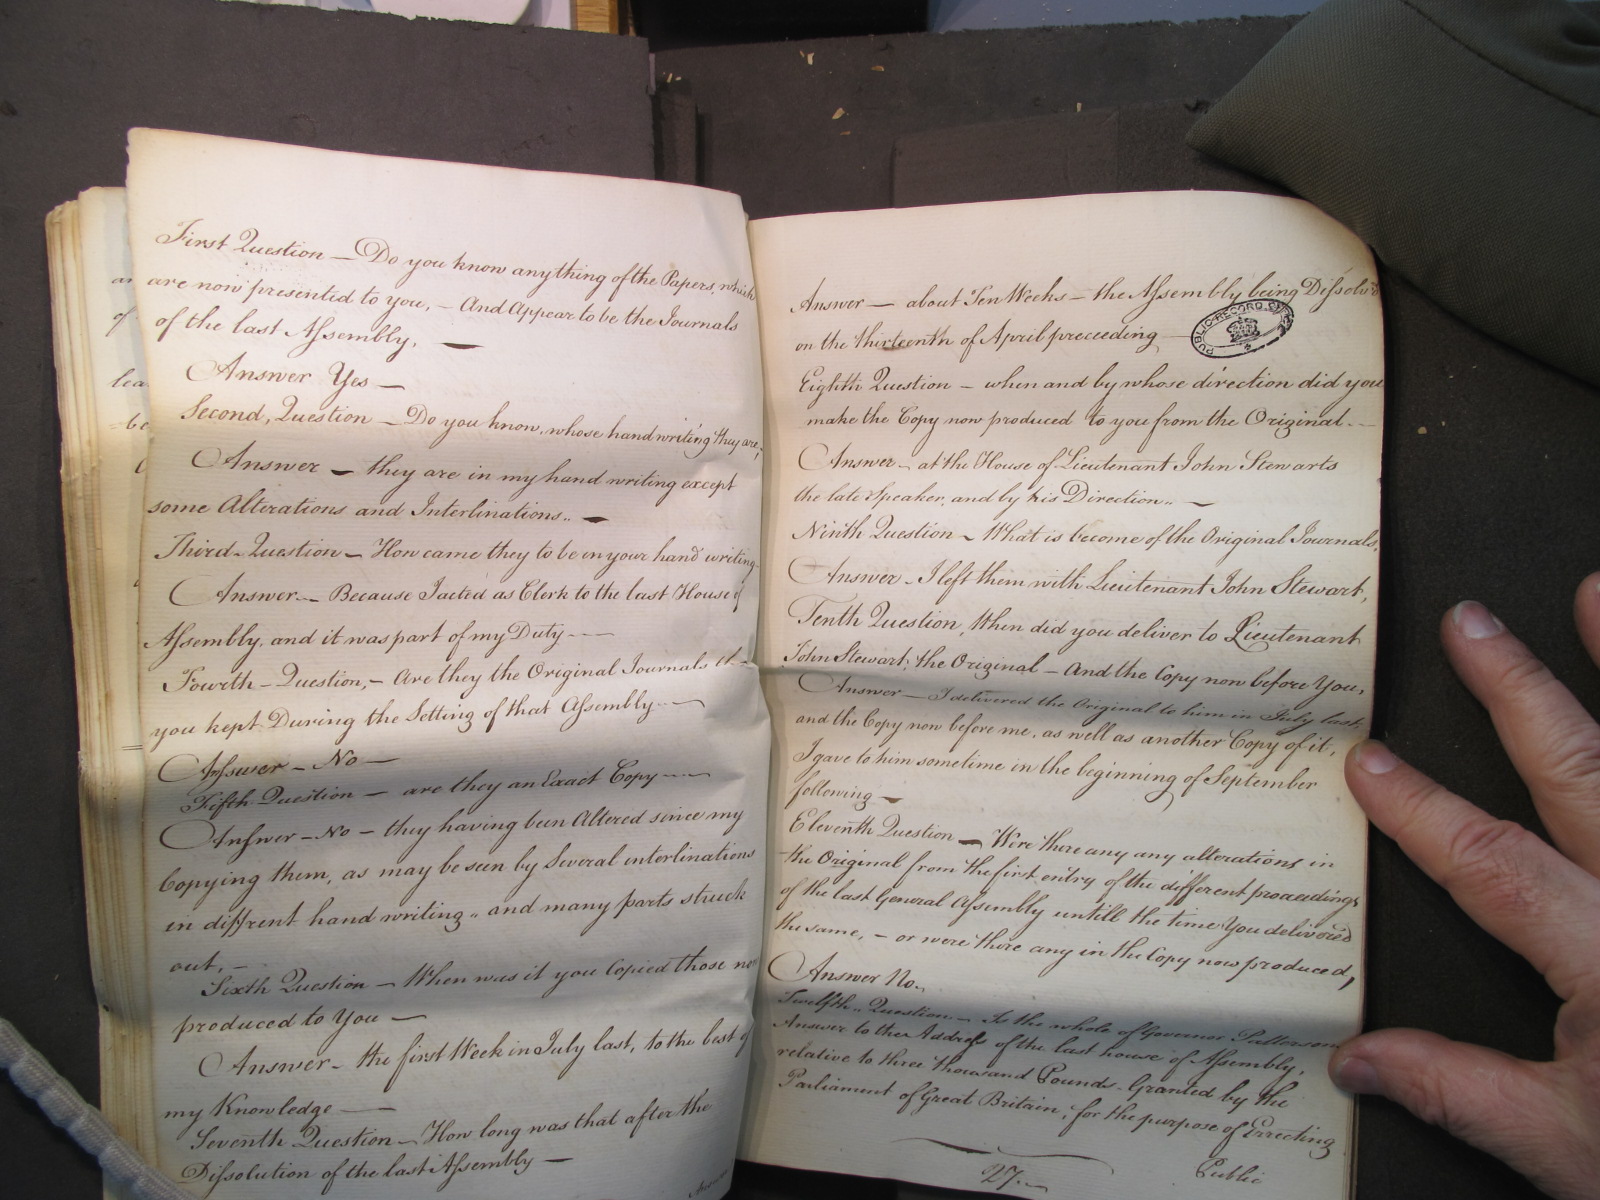 First Question — Do you know anything of the Papers, which
are now presented to you, — And Appear to be the Journals
of the last Assembly. —
Answer Yes —
Second, Question — Do you know, whose hand writing they are,
Answer — they are in my hand writing except
some Alterations and Interlinations.. —
Third - Question — How came they to be in your hand writing
Answer — Because I acted as Clerk to the last House of
Assembly, and it was part of my Duty —
Fourth - Question, — Are they the Original Journals th
you kept During the Setting of that Assembly —
Answer — No —
Fifth Question — are they an Exact Copy —
Answer — No — they having been Altered since my
Copying them, as may be seen by Several interlinations
in diffrent hand writing .. and many parts struck
out, —
Sixth Question — When was it you Copied those now
produced to You —
Answer — the first Week in July last, to the best of
my Knowledge —
Seventh Question — How long was that after the
Dissolution of the last Assembly —
Answer
Answer — about Ten Weeks — the Assembly being Dissolv'd
on the thirteenth of April preceeding —
PUBLIC RECORD OFFICE
Eighth Question — when and by whose direction did you
make the Copy now produced to you from the Original —
Answer — at the House of Lieutenant John Stewarts
the late Speaker, and by his Direction.. —
Ninth Question — What is become of the Original Journals,
Answer — I left them with Lieutenant John Stewart,
Tenth Question, When did you deliver to Lieutenant
John Stewart, the Original — And the Copy now before You,
Answer — I delivered the Original to him in July last,
and the Copy now before me, as well as another Copy of it,
I gave to him sometime in the beginning of September
following —
Eleventh Question — Were there any any alterations in
the Original from the first entry of the different proceedings
of the last General Assembly untill the time You delivered
the same, — or were there any in the Copy now produced,
Answer No.
Twelfth .. Question — Is the whole of Governor Pattersons
Answer to the Address of the last house of Assembly,
relative to three thousand Pounds Granted by the
Parliament of Great Britain, for the purpose of Errecting
27. Public